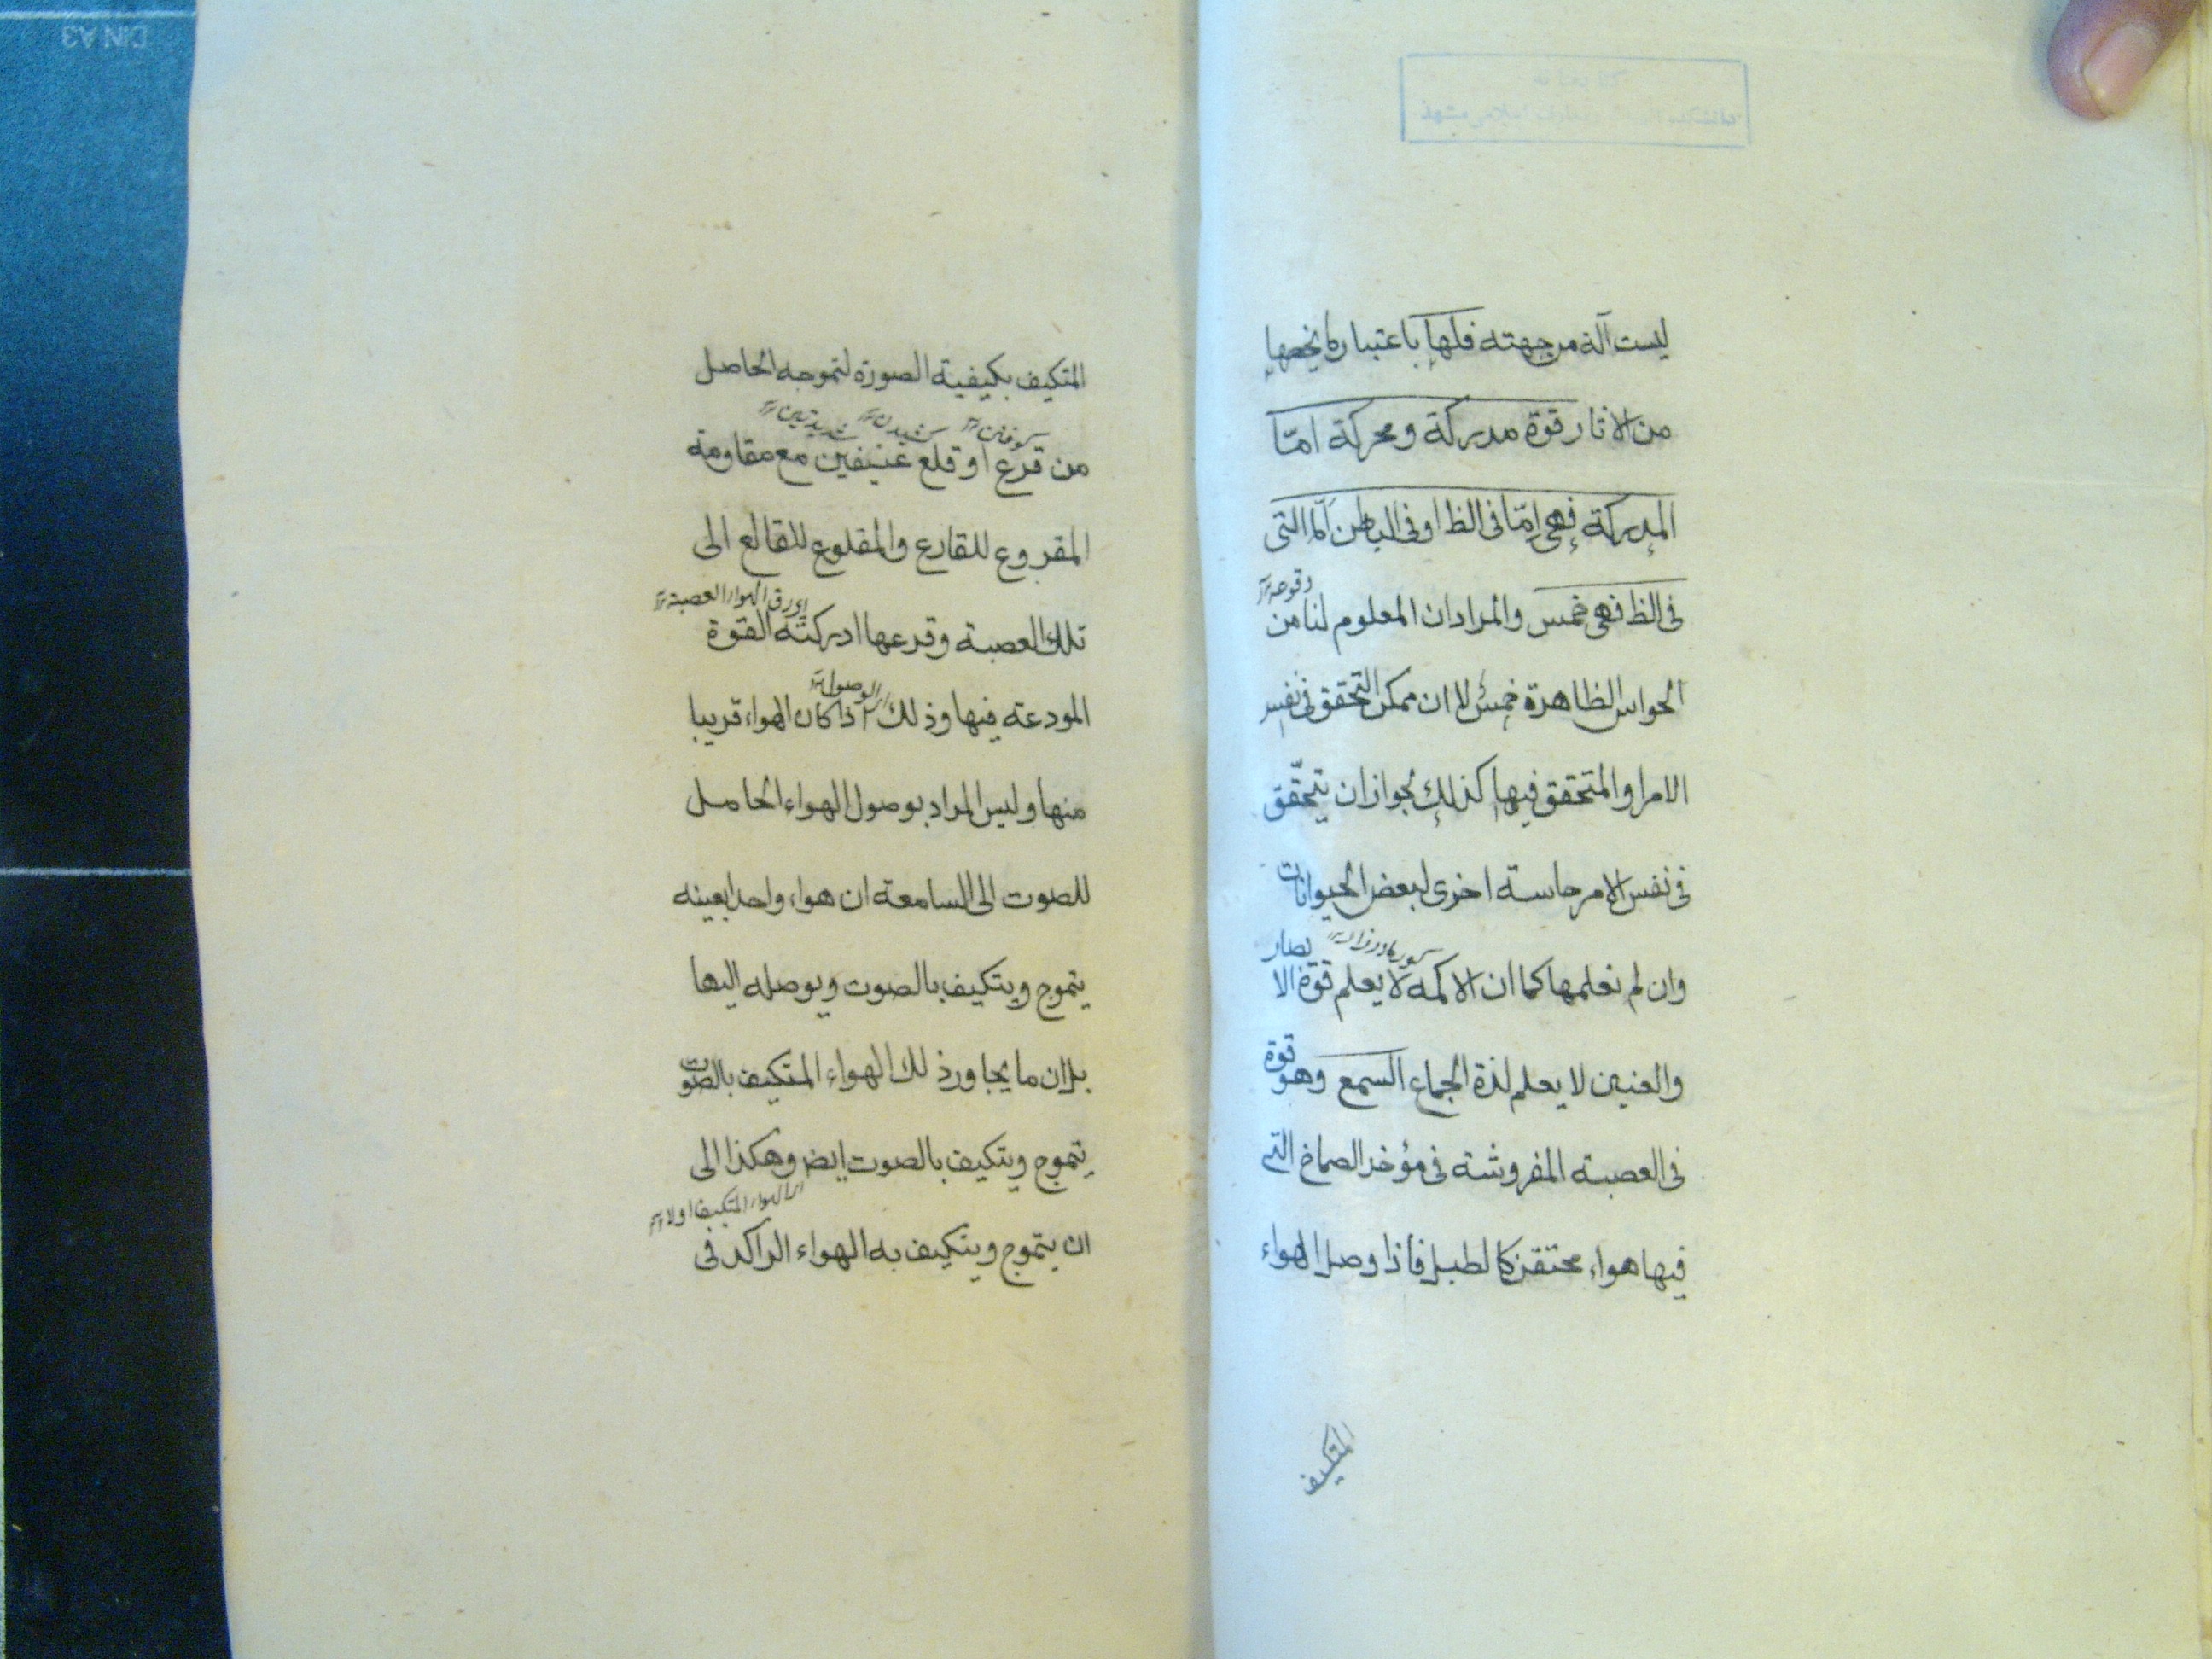 ليست آلة من جهته فلها باعتبار ما يخصها
من الاثار قوة مدركة ومحركة امّا
المدركة فهى امّا فى الظ او فى الباطن امّا التى
فى الظ فهى خمس والمراد ان المعلوم لنا من
الحواس الظاهرة خمس لا ان ممكن التحقق فى نفس
الامر او المتحقق فيها كذلك لجواز ان يتحقّق
فى نفس الامر حاسة اخرى لبعض الحيوانات
وان لم نعلمها كما ان الاكمه لا يعلم قوة الابصار
كور مادرزاد
والعنين لا يعلم لذة الجماع السمع وهو قوة
فى العصبة المفروشة فى مؤخر الصماخ التى
فيها هواء محتقن كالطبل فاذا وصل الهواء
المتكيف
المتكيف بكيفية الصورة لتموجه الحاصل
كوفتن كشيدن شديدتين
من قرع او قلع عنيفين مع مقاومة
المقروع للقارع والمقلوع للقالع الى
الهواء العصبة
تلك العصبة وقرعها ادركته القوة
الوصول
المودعة فيها وذلك اذا كان الهواء قريبا
منها وليس المراد بوصول الهواء الحامل
للصوت الى السامعة ان هواء واحدا بعينه
يتموج ويتكيف بالصوت ويوصله اليها
بل ان ما يجاور ذلك الهواء المتكيف بالصوت
يتموج ويتكيف بالصوت ايض وهكذا الى
الهواء المتكيف اولا
ان يتموج ويتكيف به الهواء الراكد فى